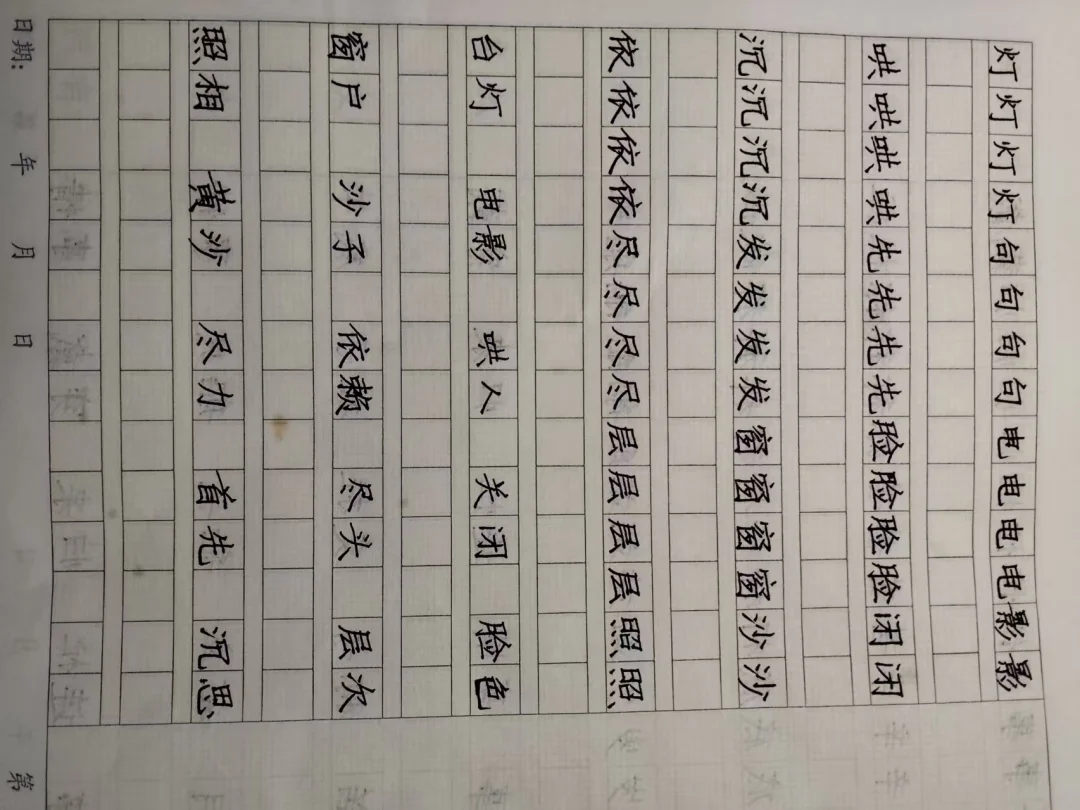 灯灯灯灯句句句句电电电电影影
哄哄哄哄先先先先脸脸脸脸闭闭
沉沉沉沉发发发发窗窗窗窗沙沙
依依依依尽尽尽尽层层层层照照
台灯 电影 哄人 关闭 脸色
窗户 沙子 依赖 尽头 层次
照相 黄沙 尽力 首先 沉思
日期: 年 月 日 第